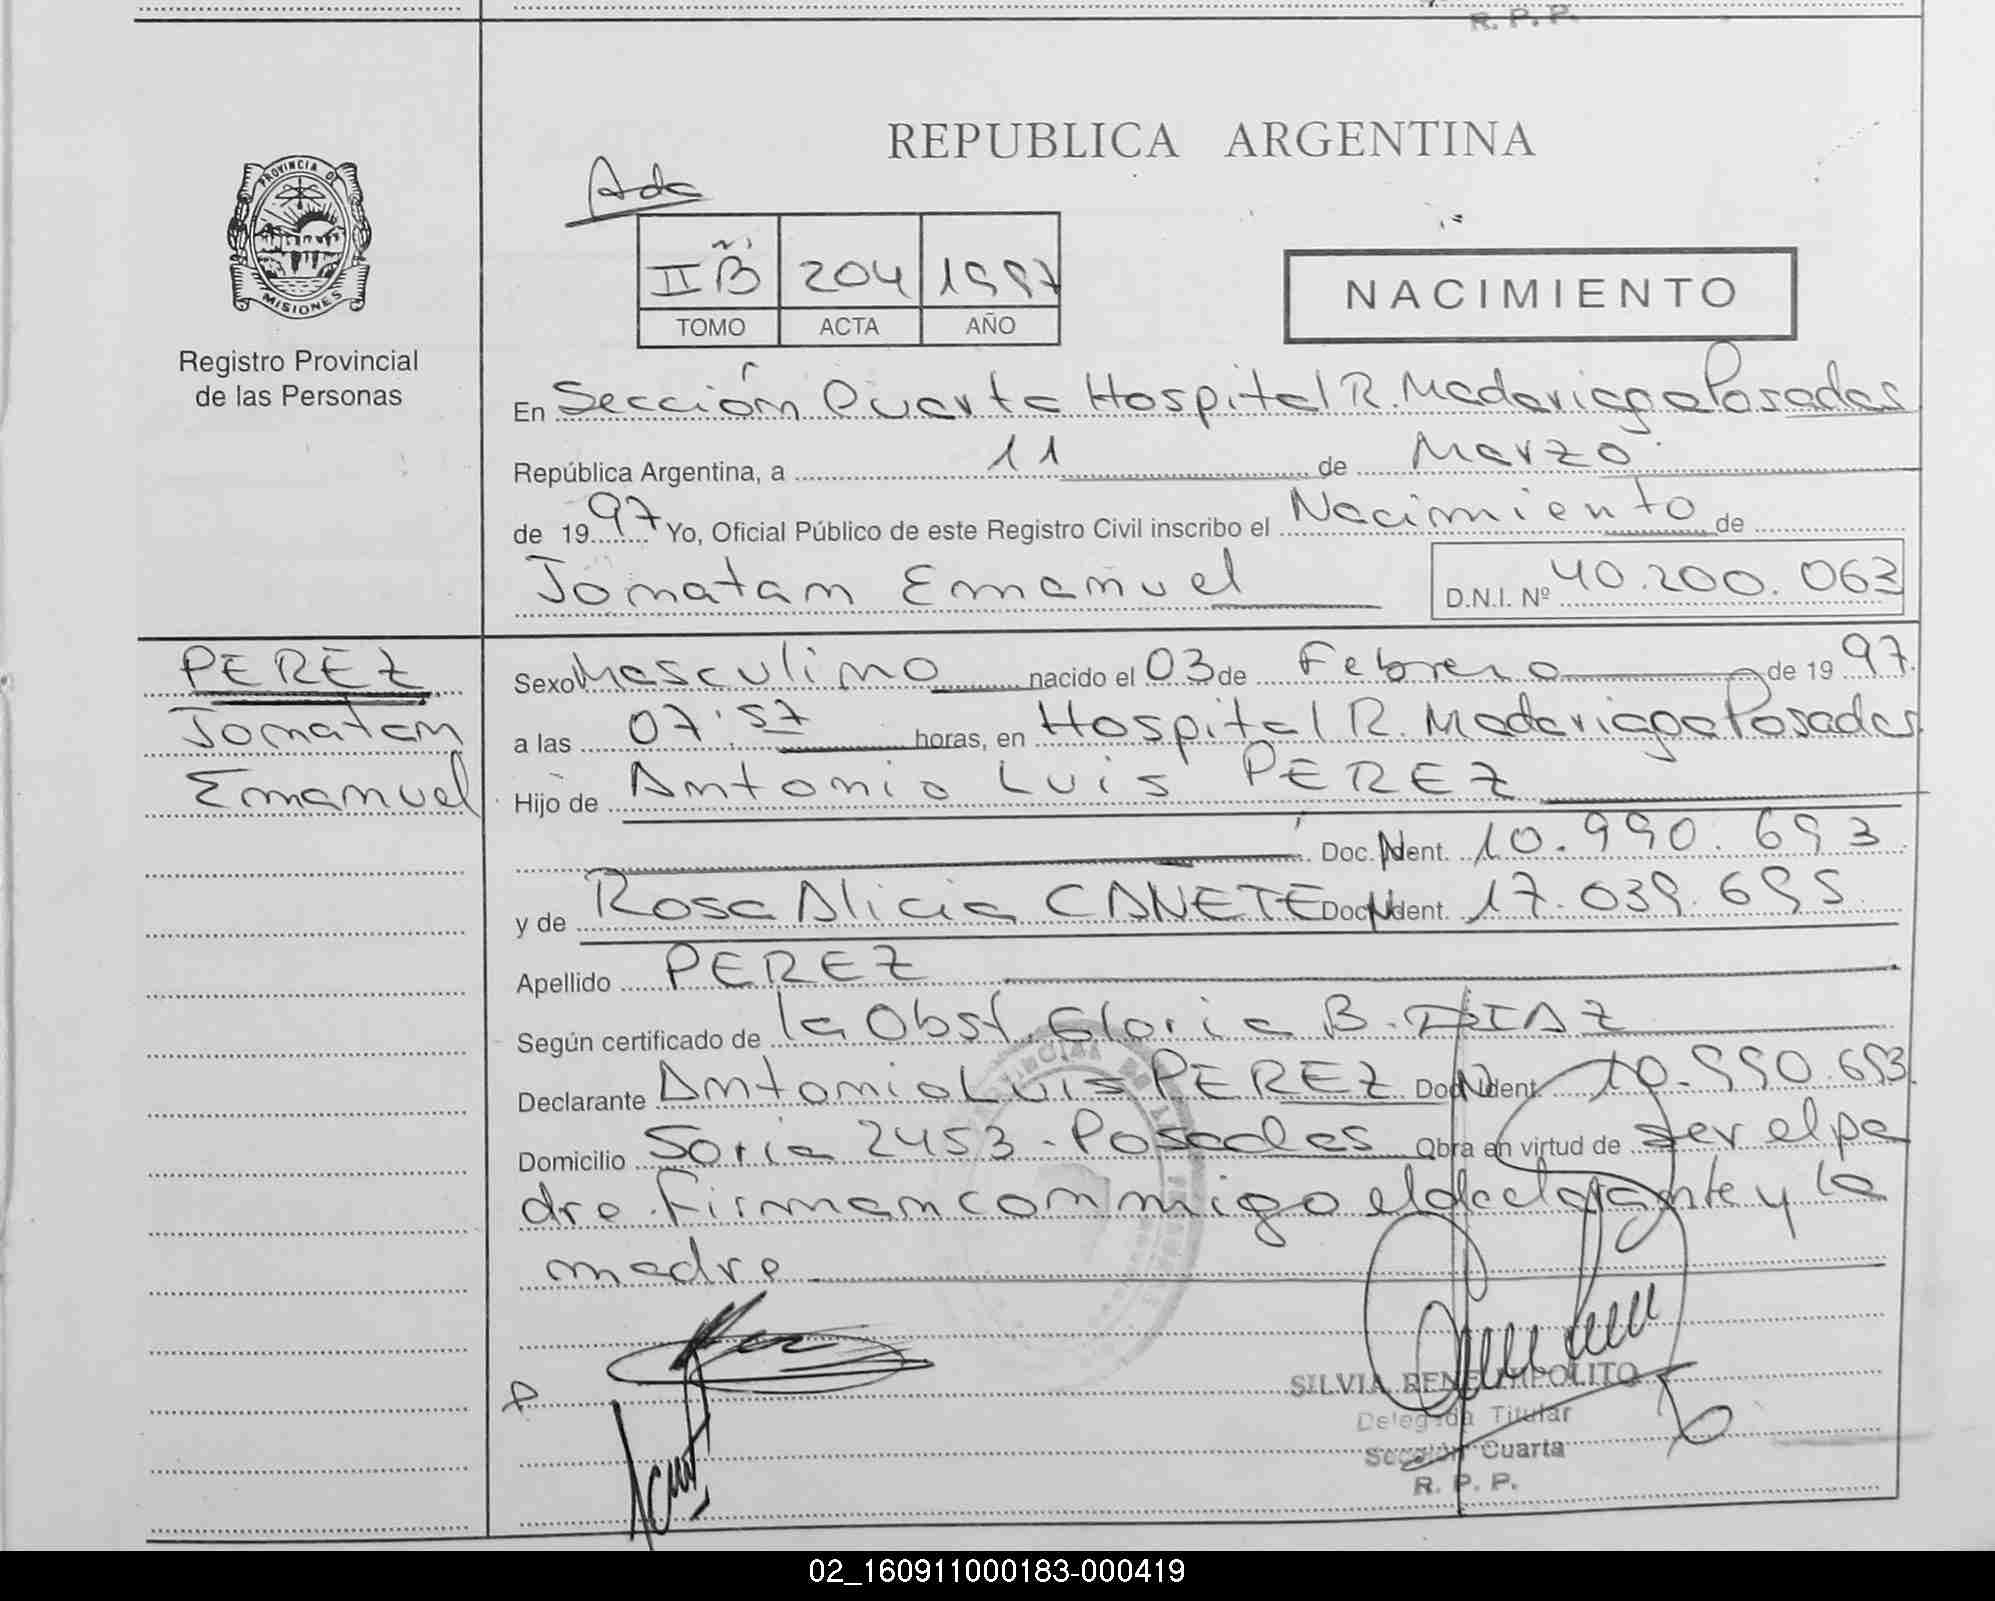 R. P. P.
REPUBLICA ARGENTINA
PROVINCIA DE
MISIONES
Registro Provincial
de las Personas
Ada
IIB 204 1997
TOMO ACTA AÑO
NACIMIENTO
En Sección Cuarta Hospital R. Madariaga Posadas
República Argentina, a 11 de Marzo
de 1997 Yo, Oficial Público de este Registro Civil inscribo el Nacimiento de
Jonatan Emanuel D.N.I. Nº 40.200.063
PEREZ
Jonatan
Emanuel
Sexo Masculino nacido el 03 de Febrero de 1997.
a las 07:57 horas, en Hospital R. Madariaga Posadas
Hijo de Antonio Luis PEREZ
Doc. Ident. 10.990.693
y de Rosa Alicia CANETE Doc. Ident. 17.039.695
Apellido PEREZ
Según certificado de la Obst. Gloria B. DIAZ
Declarante Antonio Luis PEREZ Doc. Ident. 10.990.693.
Domicilio Soria 2453 - Posadas Obra en virtud de ser el pa
dre. Firman conmigo el declarante y la
madre
SILVIA RENE HIPOLITO
Delegada Titular
Sección Cuarta
R. P. P.
02_160911000183-000419